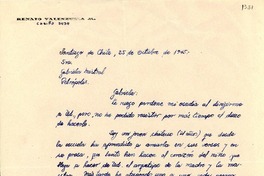 RENATO VALENZUELA M.
Santiago de Chile, 25 de Octubre de 1945.
Sra
Gabriela Mistral
Petrópolis.
Gabriela:
Le ruego perdone mi osadía al dirigirme
a Ud, pero, no he podido resistir por más tiempo el deseo
de hacerlo.
Soy un joven chileno (21 años) que desde
la escuela ha aprendido a amarla en sus versos y en
su prosa, que han hecho en el corazón del niño que
de Ud, el arquetipo de la madre y la